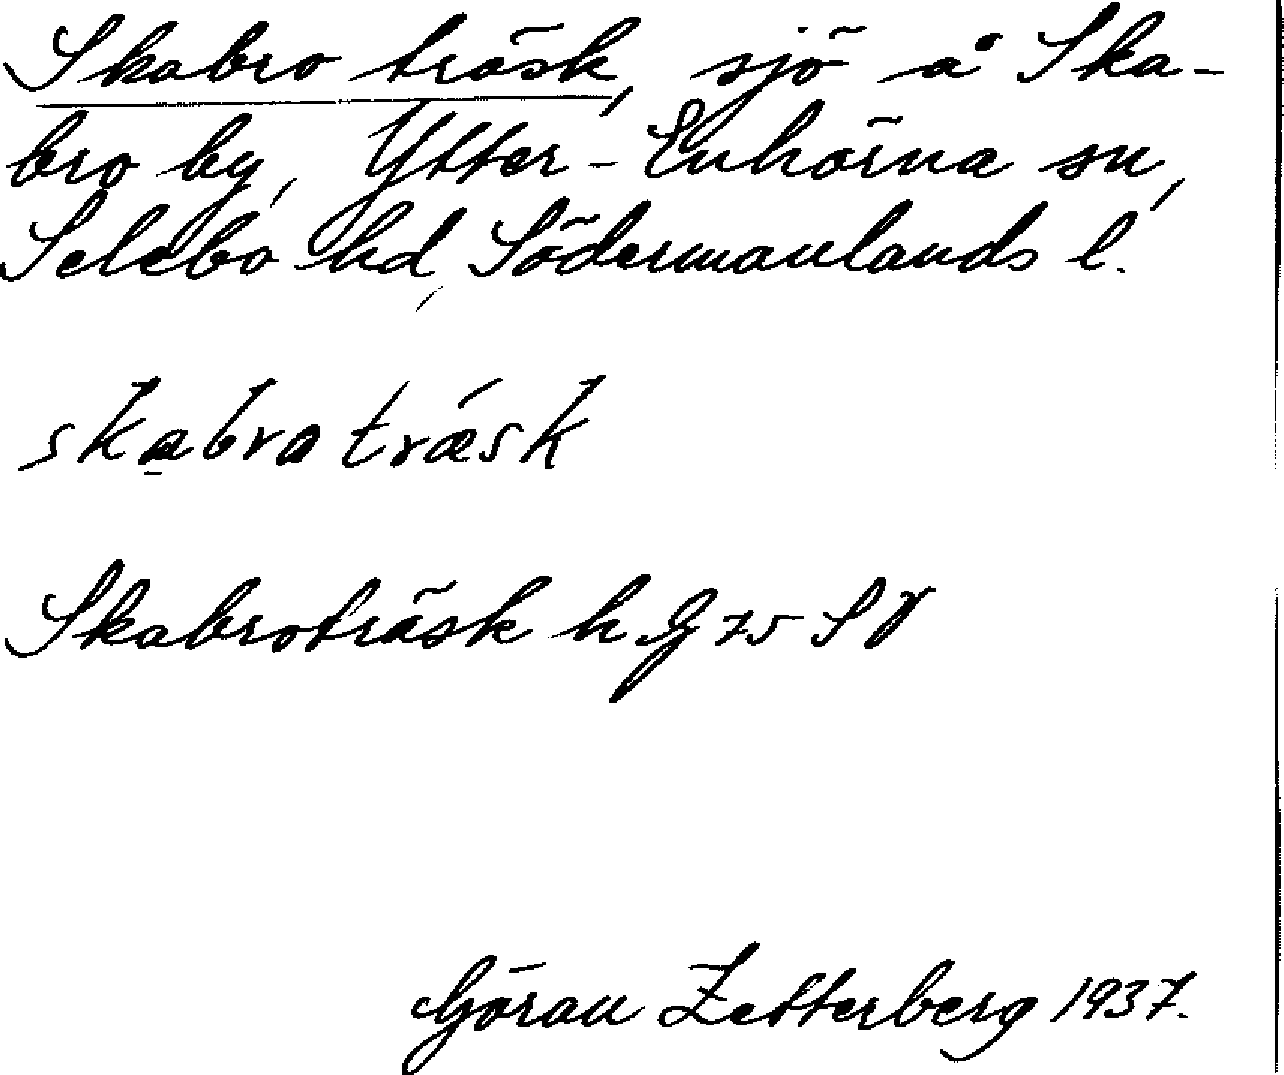 Skabro träsk, sjö å Ska-
bro by, Ytter-Enhörna sn,
Selebo hd, Södermanlands l.
skabra træ´sk
Skabroträsk h. G 75 SV
Göran Zetterberg 1937.